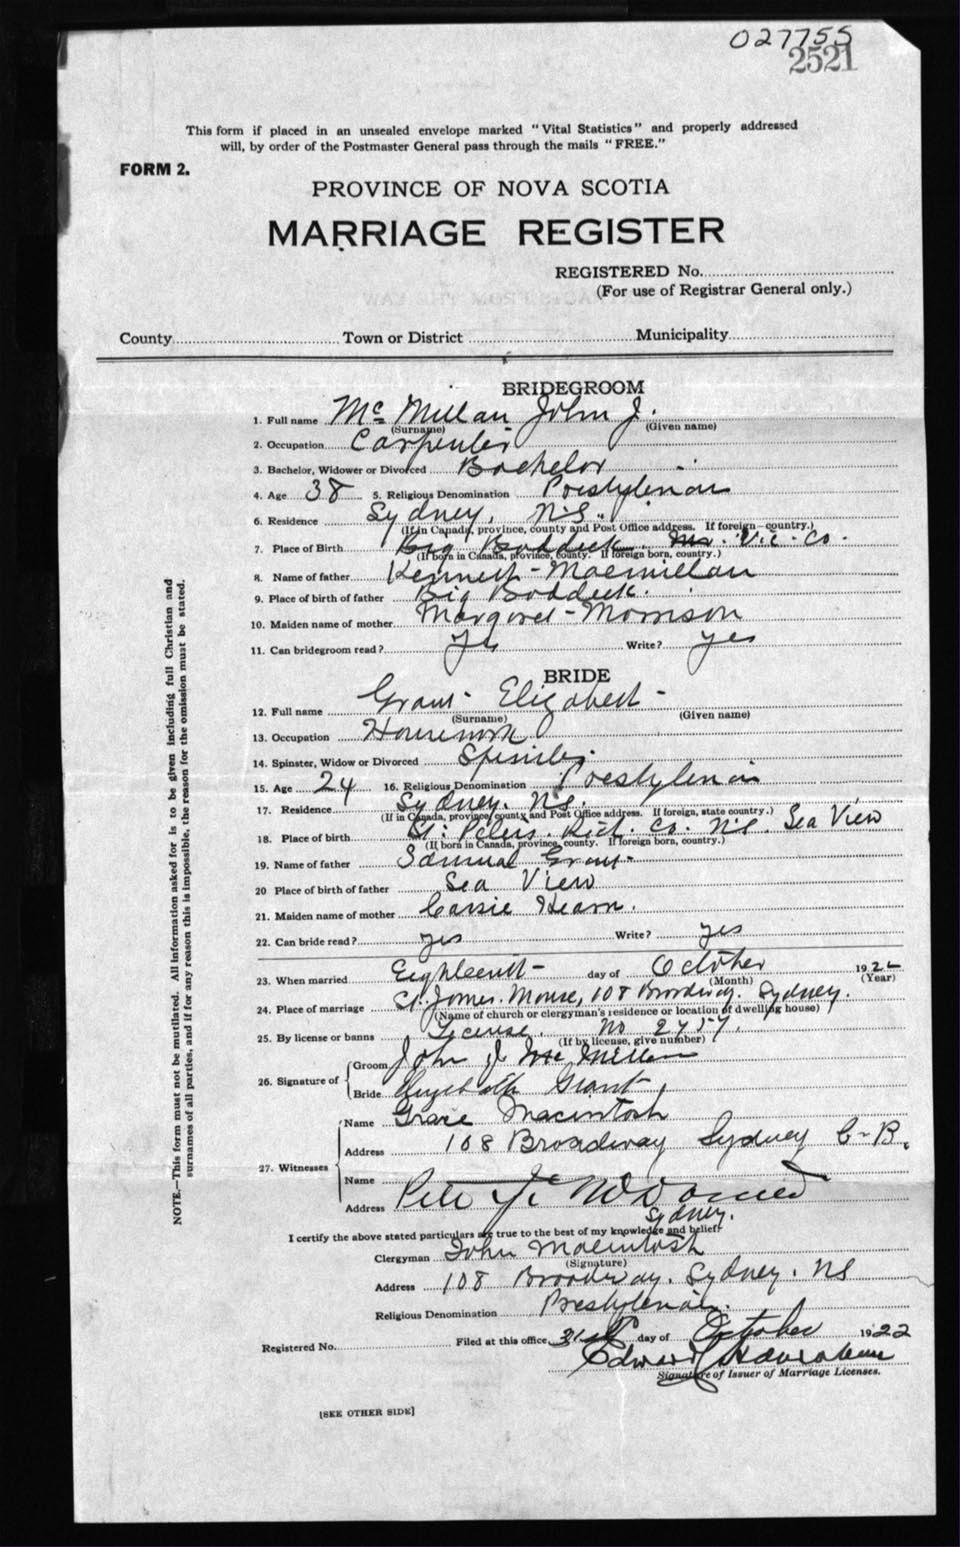 027755
2521
This form if placed in an unsealed envelope marked "Vital Statistics" and properly addressed
will, by order of the Postmaster General pass through the mails "FREE."
FORM 2.
PROVINCE OF NOVA SCOTIA
MARRIAGE REGISTER
REGISTERED No.
(For use of Registrar General only.)
County Town or District Municipality
BRIDEGROOM
1. Full name Mc Millan John J.
(Surname) (Given name)
2. Occupation Carpenter
3. Bachelor, Widower or Divorced Bachelor
4. Age 38 5. Religious Denomination Presbyterian
6. Residence Sydney, N.S.
(If in Canada, province, county and Post Office address. If foreign—country.)
7. Place of Birth Big Baddeck Vic. Co.
(If born in Canada, province, county. If foreign born, country.)
8. Name of father Kenneth - Macmillan
9. Place of birth of father Big Baddeck.
10. Maiden name of mother Margaret - Morrison
11. Can bridegroom read? Yes Write? yes
BRIDE
12. Full name Grant - Elizabeth -
(Surname) (Given name)
13. Occupation Housework
14. Spinster, Widow or Divorced Spinster
15. Age 24 16. Religious Denomination Presbyterian
17. Residence Sydney. N.S.
(If in Canada, province, county and Post Office address. If foreign, state country.)
18. Place of birth St. Peters. Rich. Co. N.S. Sea View
(If born in Canada, province, county. If foreign born, country.)
19. Name of father Samual Grant -
20 Place of birth of father Sea View
21. Maiden name of mother Cassie Hearn.
22. Can bride read? yes Write? yes
23. When married Eighteenth - day of October 1922
(Month) (Year)
24. Place of marriage St. James Manse, 108 Broadway. Sydney.
(Name of church or clergyman's residence or location of dwelling house)
25. By license or banns License. No 2457.
(If by license, give number)
26. Signature of
Groom John J Mc Millan
Bride Elizabeth Grant
27. Witnesses
Name Grace Macintosh
Address 108 Broadway Sydney C-B.
Name
Address Pete
Sydney.
I certify the above stated particulars are true to the best of my knowledge and belief:
Clergyman John Macintosh
(Signature)
Address 108 Broadway. Sydney. NS
Religious Denomination Presbyterian.
Registered No. Filed at this office 31st day of October 1922
Edward
Signature of Issuer of Marriage Licenses.
[SEE OTHER SIDE]
NOTE.—This form must not be mutilated. All information asked for is to be given including full Christian and
surnames of all parties, and if for any reason this is impossible, the reason for the omission must be stated.